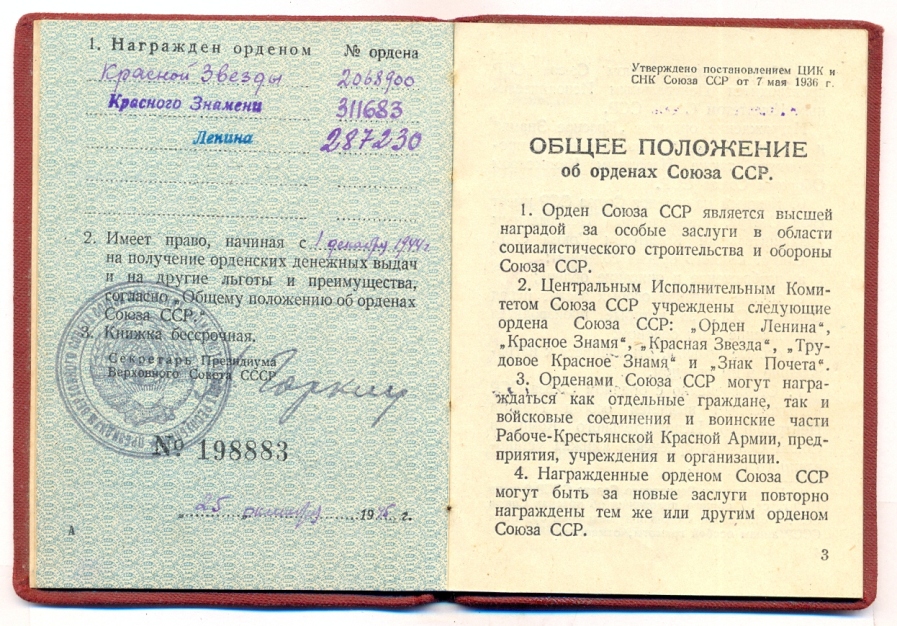 1. Награжден орденом № ордена
Красной Звезды 2068900
Красного Знамени 311683
Ленина 287230
2. Имеет право, начиная с 1 декабря 1944 г.
на получение орденских денежных выдач
и на другие льготы и преимущества,
согласно „Общему положению об орденах
Союза ССР."
3. Книжка бессрочная.
Секретарь Президиума
Верховного Совета СССР
№ 198883
„25 194 г.
А
Утверждено постановлением ЦИК и
СНК Союза ССР от 7 мая 1936 г.
ОБЩЕЕ ПОЛОЖЕНИЕ
об орденах Союза ССР.
1. Орден Союза ССР является высшей
наградой за особые заслуги в области
социалистического строительства и обороны
Союза ССР.
2. Центральным Исполнительным Коми-
тетом Союза ССР учреждены следующие
ордена Союза ССР: „Орден Ленина“,
„Красное Знамя“, „Красная Звезда“, „Тру-
довое Красное Знамя“ и „Знак Почета“.
3. Орденами Союза ССР могут награ-
ждаться как отдельные граждане, так и
войсковые соединения и воинские части
Рабоче-Крестьянской Красной Армии, пред-
приятия, учреждения и организации.
4. Награжденные орденом Союза ССР
могут быть за новые заслуги повторно
награждены тем же или другим орденом
Союза ССР.
3